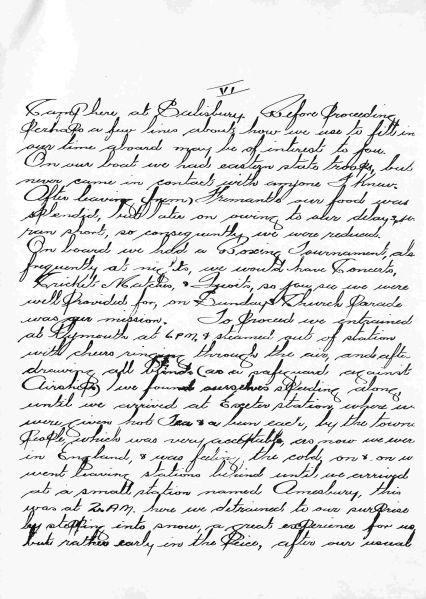 VI
Camp here at Salisbury Before Proceeding
Perhaps a few lines about how we use to fill in
our time aboard may be of interest to you.
On our boat we had eastern state troops, but
never came in contact with anyone I knew.
After leaving from Fremantle our food was
splendid, but later on owing to our delay &
ran short, so consequently we were reduced.
On board we held a Boxing Tournament, als
frequently at nig'ts, we would have Concerts,
Kricket Matches, & Quoits, so you see we were
well Provided for, on Sundays Church Parade
was our mission. To Proceed we entrained
at Plymouth at 6 P.M. & steamed out of station
with cheers ringing through the air, and afte
drawing all Blinds (as a safeguard against
Airships) we found ourselves speeding along
until we arrived at Exeter station, where w
were given hot Tea & a bun each, by the towns
People, which was very acceptable, as now we were
in England, & was feelin the cold, on & on w
went leaving stations behind until we arrived
at a small station named Amesbury, this
was at 2 AM. here we detrained to our surprise
by stepping into snow, a great experience for us
but rather early in the Peice, after our usual